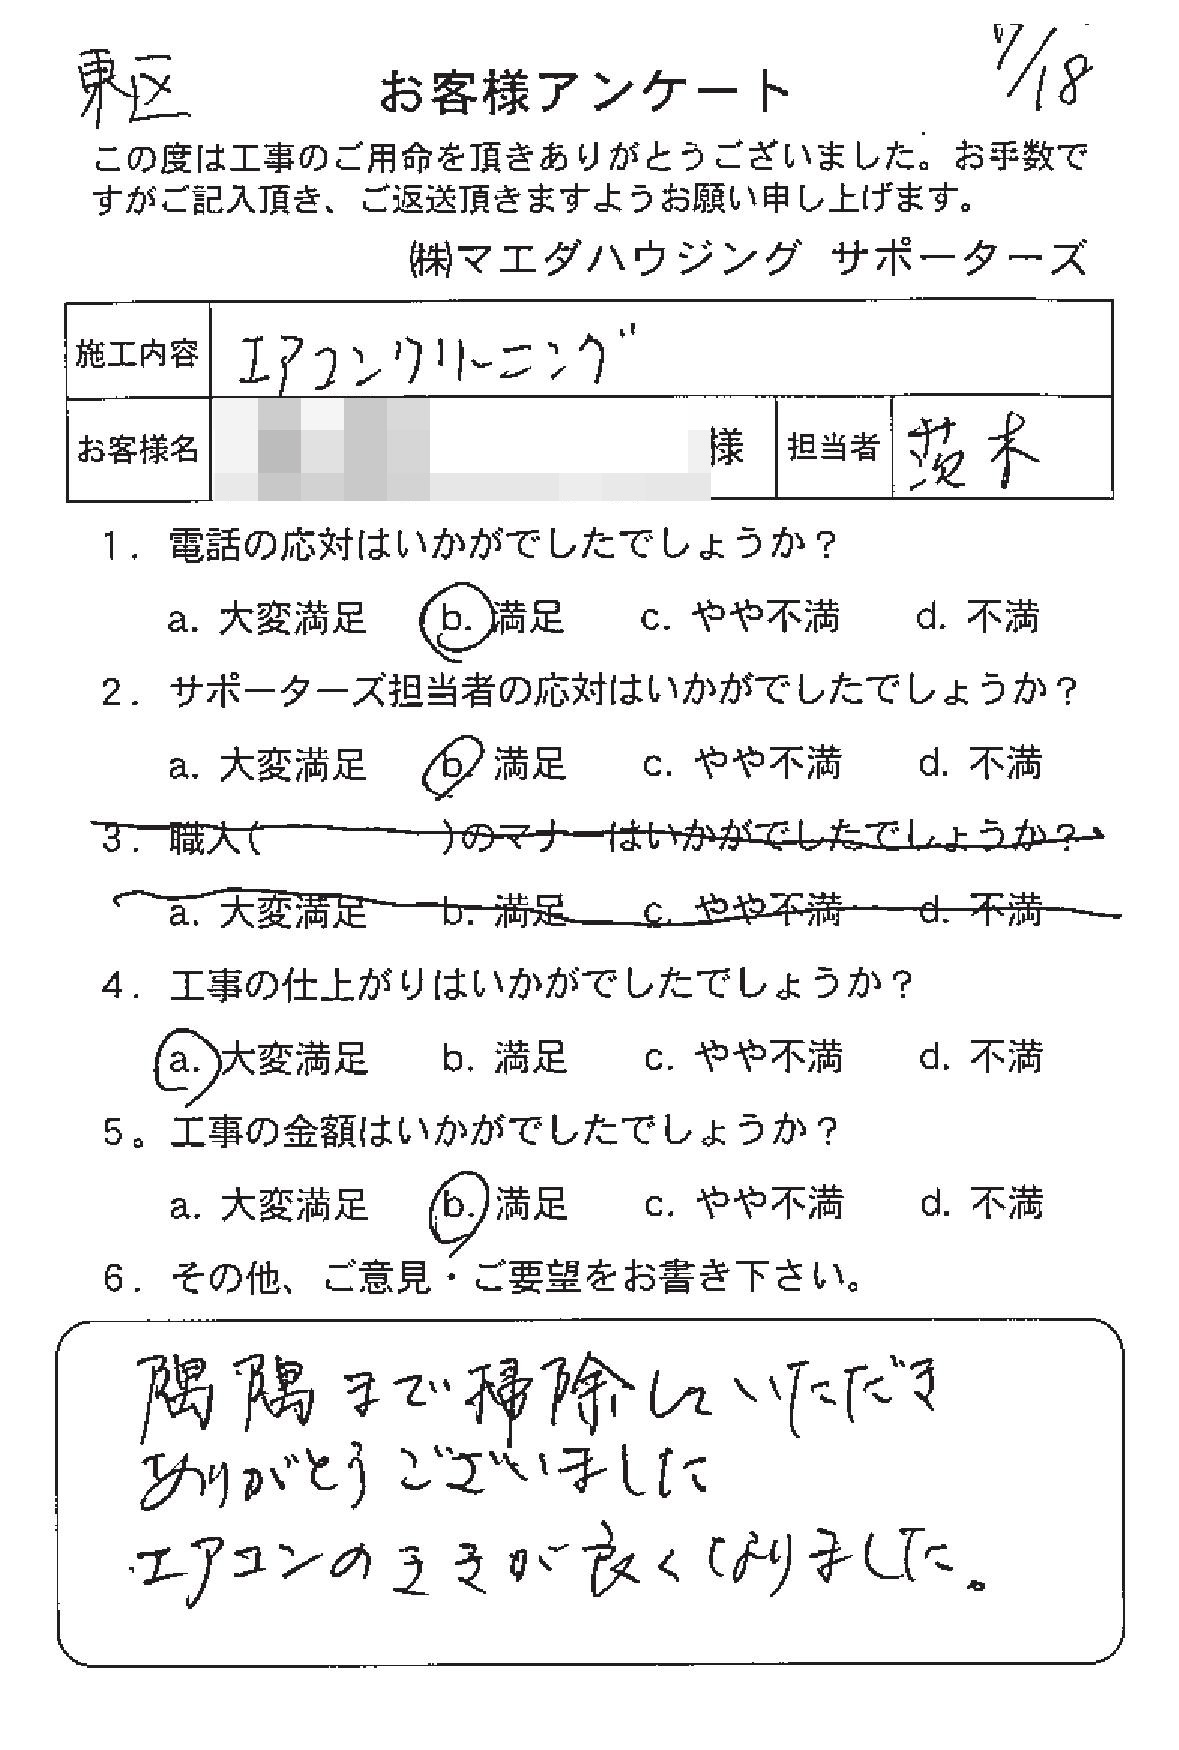 東区
7/18
お客様アンケート
この度は工事のご用命を頂きありがとうございました。お手数で
すがご記入頂き、ご返送頂きますようお願い申し上げます。
㈱マエダハウジング サポーターズ
施工内容 エアコンクリーニング
お客様名 様 担当者 茨木
1. 電話の応対はいかがでしたでしょうか？
a. 大変満足 b. 満足 c. やや不満 d. 不満
2. サポーターズ担当者の応対はいかがでしたでしょうか？
a. 大変満足 b. 満足 c. やや不満 d. 不満
3. 職人( )のマナーはいかがでしたでしょうか？
a. 大変満足 b. 満足 c. やや不満 d. 不満
4. 工事の仕上がりはいかがでしたでしょうか？
a. 大変満足 b. 満足 c. やや不満 d. 不満
5。工事の金額はいかがでしたでしょうか？
a. 大変満足 b. 満足 c. やや不満 d. 不満
6. その他、ご意見・ご要望をお書き下さい。
隅隅まで掃除していただき
ありがとうございました
エアコンのききが良くなりました。